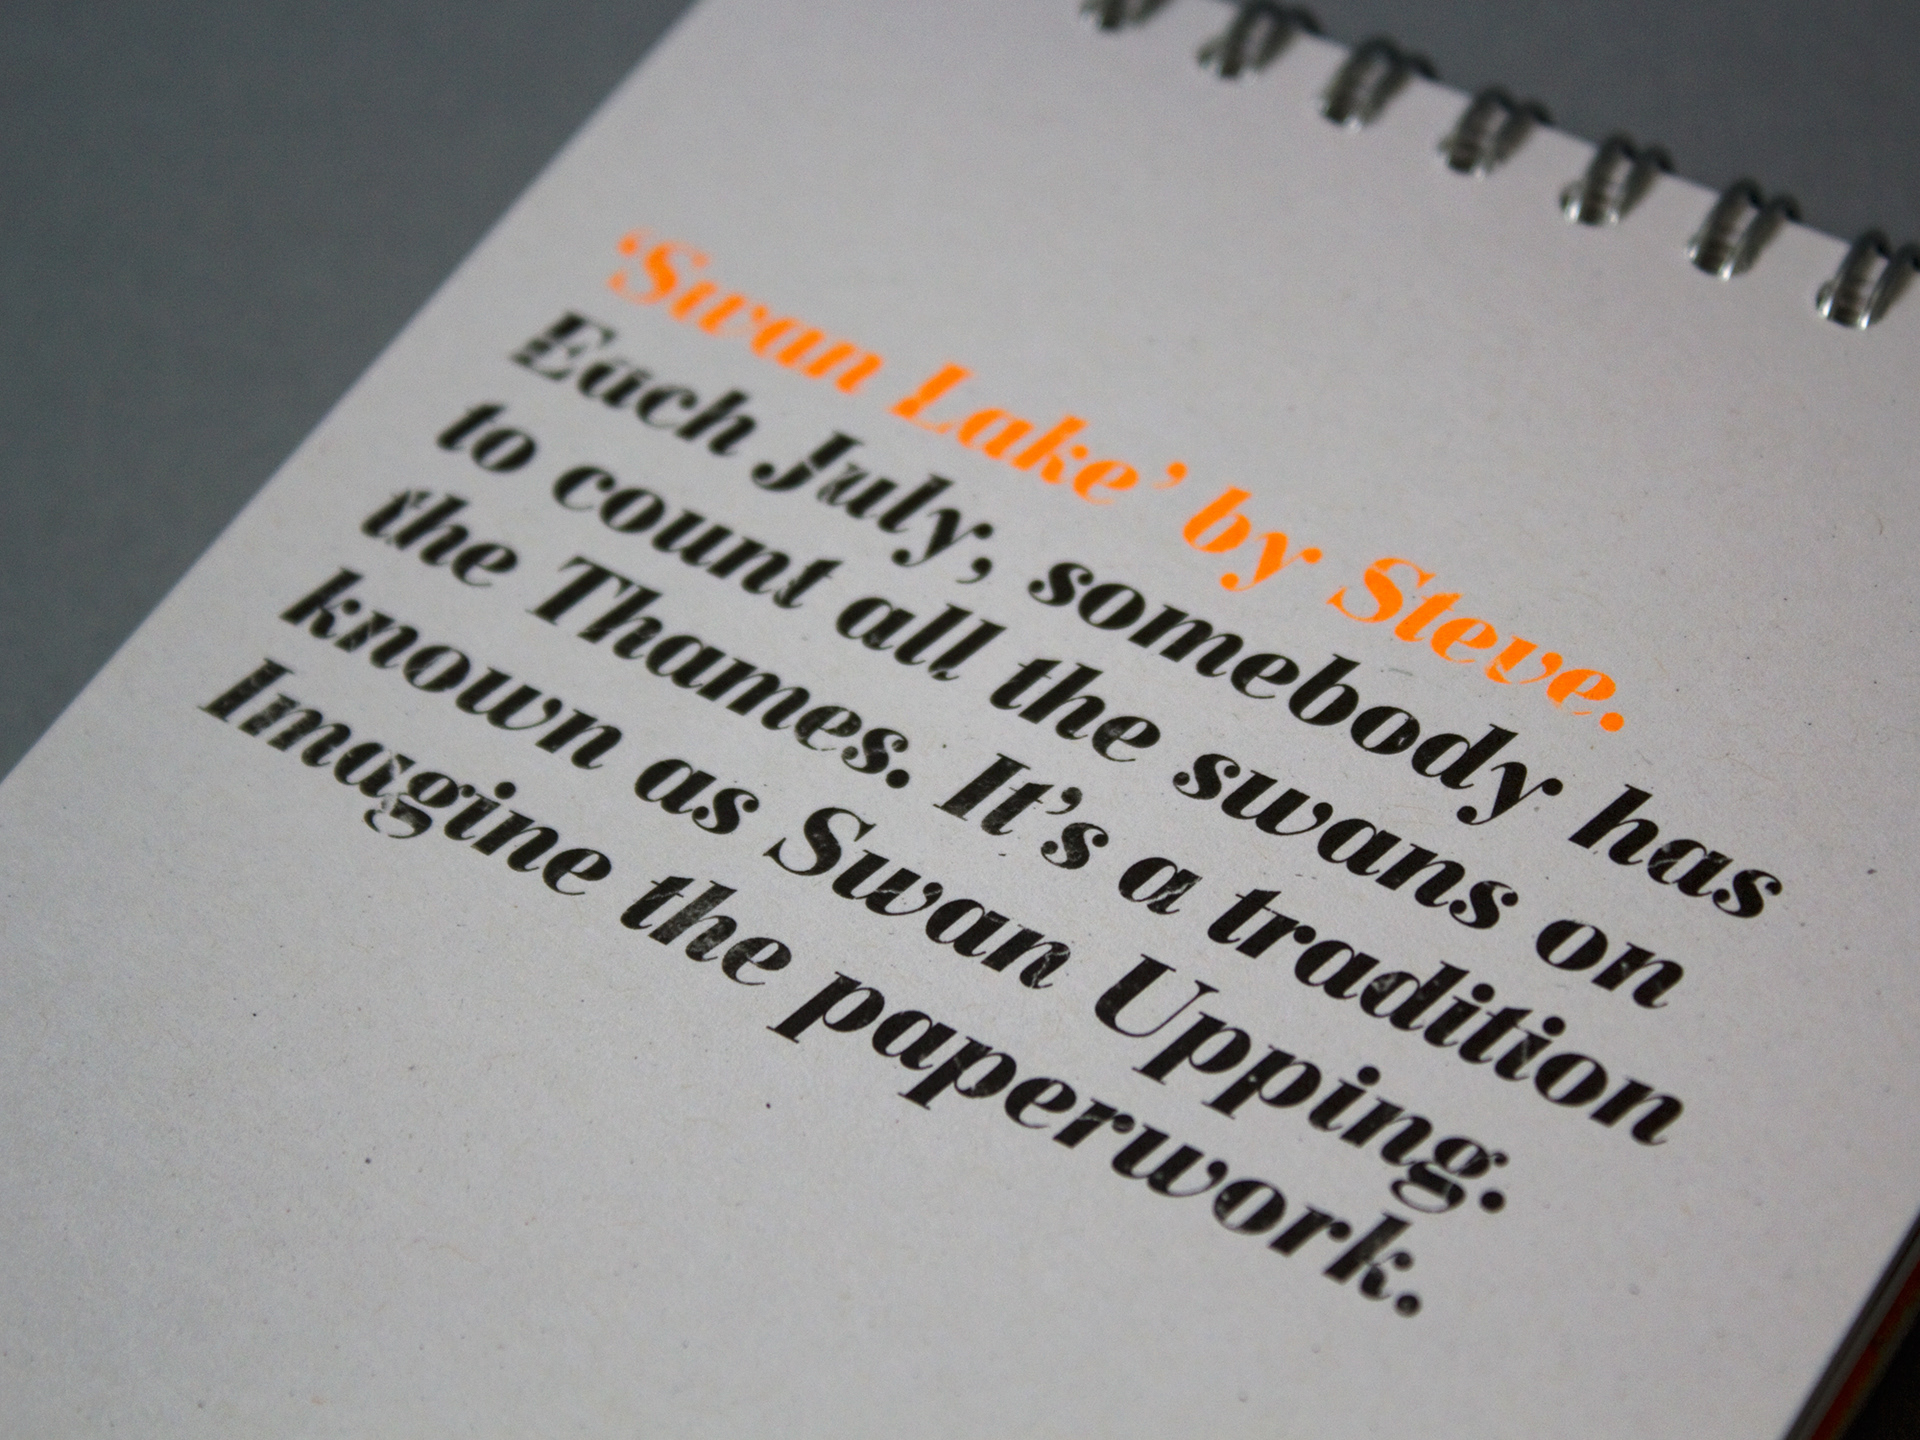 ‘Swan Lake’ by Steve.
Each July, somebody has
to count all the swans on
the Thames. It’s a tradition
known as Swan Upping.
Imagine the paperwork.